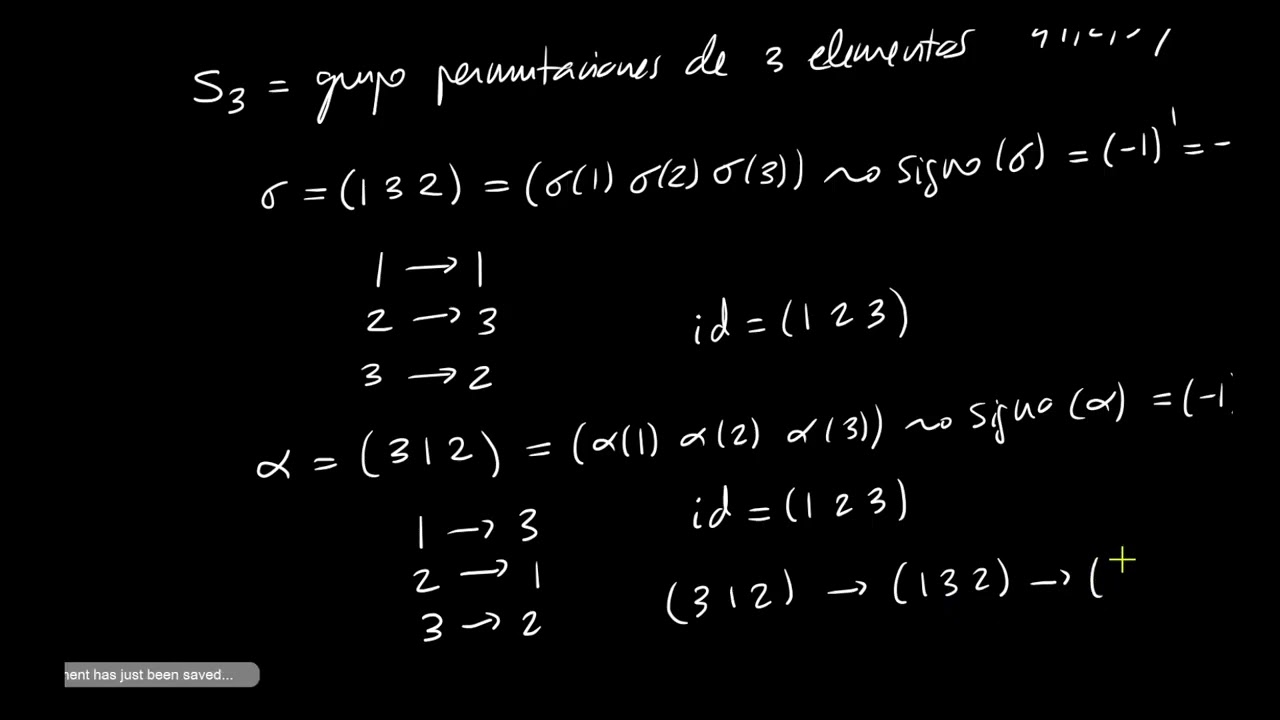 S₃ = grupo permutaciones de 3 elementos
σ = (1 3 2) = (σ(1) σ(2) σ(3)) ⇝ signo (σ) = (-1)¹ = -
1 → 1
2 → 3
id = (1 2 3)
3 → 2
α = (3 1 2) = (α(1) α(2) α(3)) ⇝ signo (α) = (-1)
1 → 3
id = (1 2 3)
2 → 1
(3 1 2) → (1 3 2) → (
3 → 2
ment has just been saved...